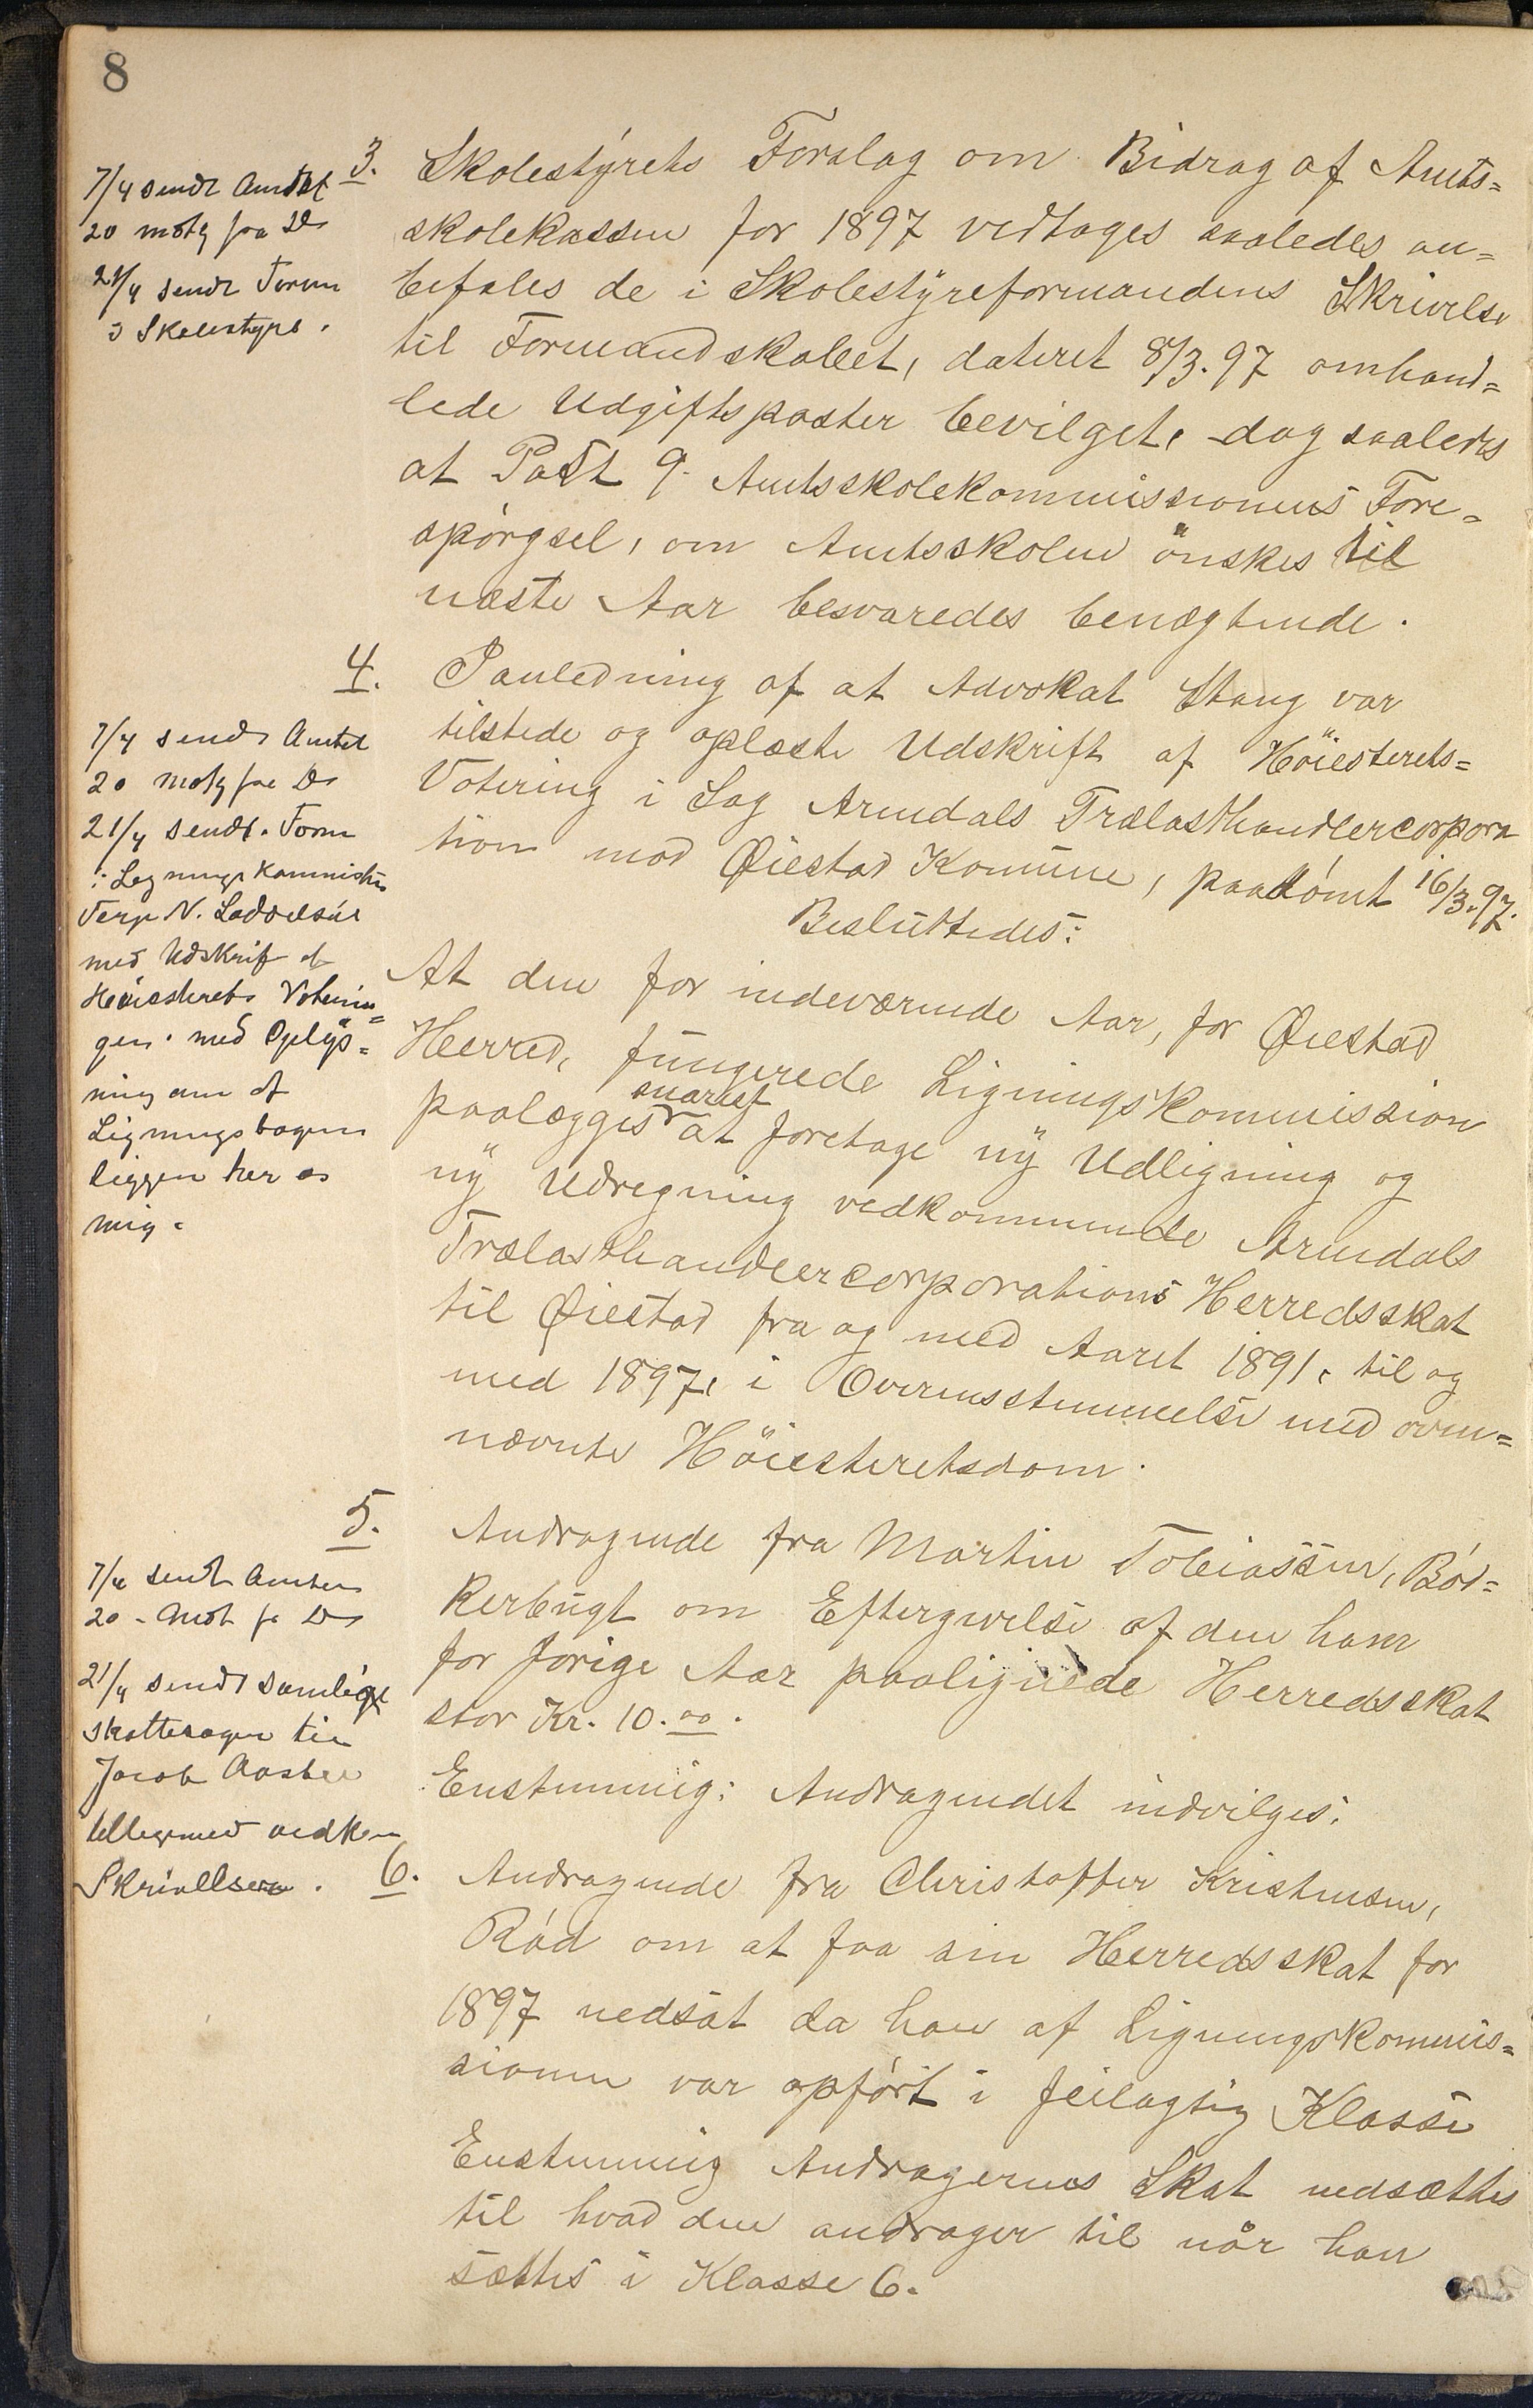 8
3. Skolestyrets Forslag om Bidrag af Amts=
skolekassen for 1897 vedtages saaledes an=
befales de i Skolestyreformandens Skrivelse
til Formandskabet, dateret 8/3. 97 omhand=
lede Udgiftsposter bevilget, dog saaledes
at Post 9. Amtsskolekommissionens Fore=
spørgsel, om Amtsskolen ønskes til
næste Aar besvaredes benegtende.
7/4 sendt Amtet
20 motg fra Do
21/4 sendt Form
i Skolestyre.
4. I anledning af at Advokat Stang var
tilstede og oplæste Udskrift af Höiesterets=
Votering i Sag Arendals Trælasthandlercorpora
tion mod Øiestad Komune, paadømt 16/3.97.
Besluttedes:
At den for indeværende Aar, for Øiestad
Herred, fungerede Ligningskommission
snarest
paalægges at foretage ny Udligning og
ny Udregning vedkommende Arendals
Trælasthandlercorporations Herredsskat
til Øiestad fra og med Aaret 1891, til og
med 1897, i Overensstemmelse med oven=
nævnte Höiesteretsdom.
7/4 sendt Amtet
20 motg fra Do
21/4 sendt. Form
i Legnings kommission
Terje N.
med Udskrift af
Høiesterets Voterin=
gen. med Oplys=
ning om at
Ligningsbogen
ligger her os
mig.
5. Andragende fra Martin Tobiassen, Bød=
kerbugt om Eftergivelse af den ham
for forige Aar paalignede Herredsskat
stor Kr. 10.00.
Enstemmig: Andragendet indvilges.
7/4 sendt Amtet
20 - Mot fr Do
21/4 sendt samlige
skattesager til
Jacob Aasbee
tilligemed vedkom
Skrivellser.
6. Andragende fra Christoffer Kristensen,
Rød om at faa sin Herredsskat for
1897 nedsat da han af Ligningskommis=
sionen var opført i feilagtig Klasse
Enstemmig Andragerens Skat nedsættes
til hvad den andrager til når han
sættes i Klasse 6.